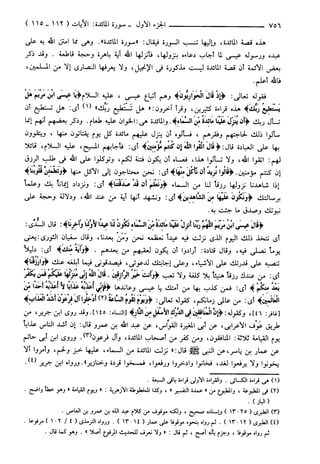 ٧٥٦ الجزء الأول - سورة المائدة: الآيات (١١٢ - ١١٥)
هذه قصة المائدة، وإليها تنسب السورة فيقال: «سورة المائدة». وهي مما امتن الله به على
عبده ورسوله عيسى لما أجاب دعاءه بنزولها، فأنزلها الله آية باهرة وحجة قاطعة. وقد ذكر
بعض الأئمة أن قصة المائدة ليست مذكورة في الإنجيل، ولا يعرفها النصارى إلا من المسلمين،
فالله أعلم.
فقوله تعالى: ﴿إِذْ قَالَ الْحَوَارِيُّونَ﴾ وهم أتباع عيسى، عليه السلام ﴿يَا عِيسَى ابْنَ مَرْيَمَ هَلْ
يَسْتَطِيعُ رَبُّكَ﴾ هذه قراءة كثيرين، وقرأ آخرون: «هل تستطيع ربك» (١) أي: هل تستطيع أن
تسأل ربك ﴿أَن يُنَزِّلَ عَلَيْنَا مَائِدَةً مِّنَ السَّمَاءِ﴾. والمائدة هي: الخوان عليه طعام. وذكر بعضهم أنهم إنما
سألوا ذلك لحاجتهم وفقرهم، فسألوه أن ينزل عليهم مائدة كل يوم يقتاتون منها، ويتقوون
بها على العبادة قال: ﴿قَالَ اتَّقُوا اللَّهَ إِن كُنتُم مُّؤْمِنِينَ﴾ أي: فأجابهم المسيح، عليه السلام، قائلا
لهم: اتقوا الله، ولا تسألوا هذا، فعساه أن يكون فتنة لكم، وتوكلوا على الله في طلب الرزق
إن كنتم مؤمنين. ﴿قَالُوا نُرِيدُ أَن نَّأْكُلَ مِنْهَا﴾ أي: نحن محتاجون إلى الأكل منها ﴿وَتَطْمَئِنَّ قُلُوبُنَا﴾
إذا شاهدنا نزولها رزقاً لنا من السماء ﴿وَنَعْلَمَ أَن قَدْ صَدَقْتَنَا﴾ أي: ونزداد إيماناً بك وعلماً
برسالتك ﴿وَنَكُونَ عَلَيْهَا مِنَ الشَّاهِدِينَ﴾ أي: ونشهد أنها آية من عند الله، ودلالة وحجة على
نبوتك وصدق ما جئت به.
﴿قَالَ عِيسَى ابْنُ مَرْيَمَ اللَّهُمَّ رَبَّنَا أَنزِلْ عَلَيْنَا مَائِدَةً مِّنَ السَّمَاءِ تَكُونُ لَنَا عِيدًا لِّأَوَّلِنَا وَآخِرِنَا﴾: قال السدي:
أي نتخذ ذلك اليوم الذي نزلت فيه عيداً نعظمه نحن ومن بعدنا، وقال سفيان الثوري: يعني
يوماً نصلي فيه، وقال قتادة: أرادوا أن يكون لعقبهم من بعدهم. ﴿وَآيَةً مِّنكَ﴾ أي: دليلاً
تنصبه على قدرتك على الأشياء، وعلى إجابتك لدعوتي، فيصدقوني فيما أبلغه عنك ﴿وَارْزُقْنَا﴾
أي: من عندك رزقاً هنيئاً بلا كلفة ولا تعب ﴿وَأَنتَ خَيْرُ الرَّازِقِينَ. قَالَ اللَّهُ إِنِّي مُنَزِّلُهَا عَلَيْكُمْ فَمَن يَكْفُرْ
بَعْدُ مِنكُمْ﴾ أي: فمن كذب بها من أمتك يا عيسى وعاندها ﴿فَإِنِّي أُعَذِّبُهُ عَذَابًا لَّا أُعَذِّبُهُ أَحَدًا مِّنَ
الْعَالَمِينَ﴾ أي: من عالمي زمانكم، كقوله تعالى: ﴿وَيَوْمَ تَقُومُ السَّاعَةُ (٢) أَدْخِلُوا آلَ فِرْعَوْنَ أَشَدَّ الْعَذَابِ﴾
[غافر: ٤٦]، وكقوله: ﴿إِنَّ الْمُنَافِقِينَ فِي الدَّرْكِ الْأَسْفَلِ مِنَ النَّارِ﴾ [النساء: ١٤٥]. وقد روى ابن جرير، من
طريق عوف الأعرابي، عن أبي المغيرة القواس، عن عبد الله بن عمرو قال: إن أشد الناس عذاباً
يوم القيامة ثلاثة: المنافقون، ومن كفر من أصحاب المائدة، وآل فرعون (٣). وروى ابن أبي حاتم
عن عمار بن ياسر، عن النبي ﷺ قال: «نزلت المائدة من السماء، عليها خبز ولحم، وأمروا ألا
يخونوا ولا يرفعوا لغد، فخانوا وادخروا ورفعوا، فمسخوا قردة وخنازير». ورواه ابن جرير (٤).
(١) هي قراءة الكسائي. والقراءة الأولى قراءة باقي السبعة.
(٢) في المطبوعة، والمطبوع من «عمدة التفسير»، وكذا المخطوطة الأزهرية: «ويوم القيامة» وهو خطأ واضح.
(الباز).
(٣) الطبري (١٣٠٢٥) وإسناده صحيح، ولكنه موقوف من كلام عبد الله بن عمرو بن العاص.
(٤) الطبري (١٣٠١٢). ثم رواه بنحوه موقوفا على عمار (١٣٠١٤). ورواه الترمذي (٤/١٠٢) مرفوعا.
ثم رواه موقوفا، وجزم بأنه أصح، ثم قال: «ولا نعرف للحديث المرفوع أصلا». وهو كما قال.